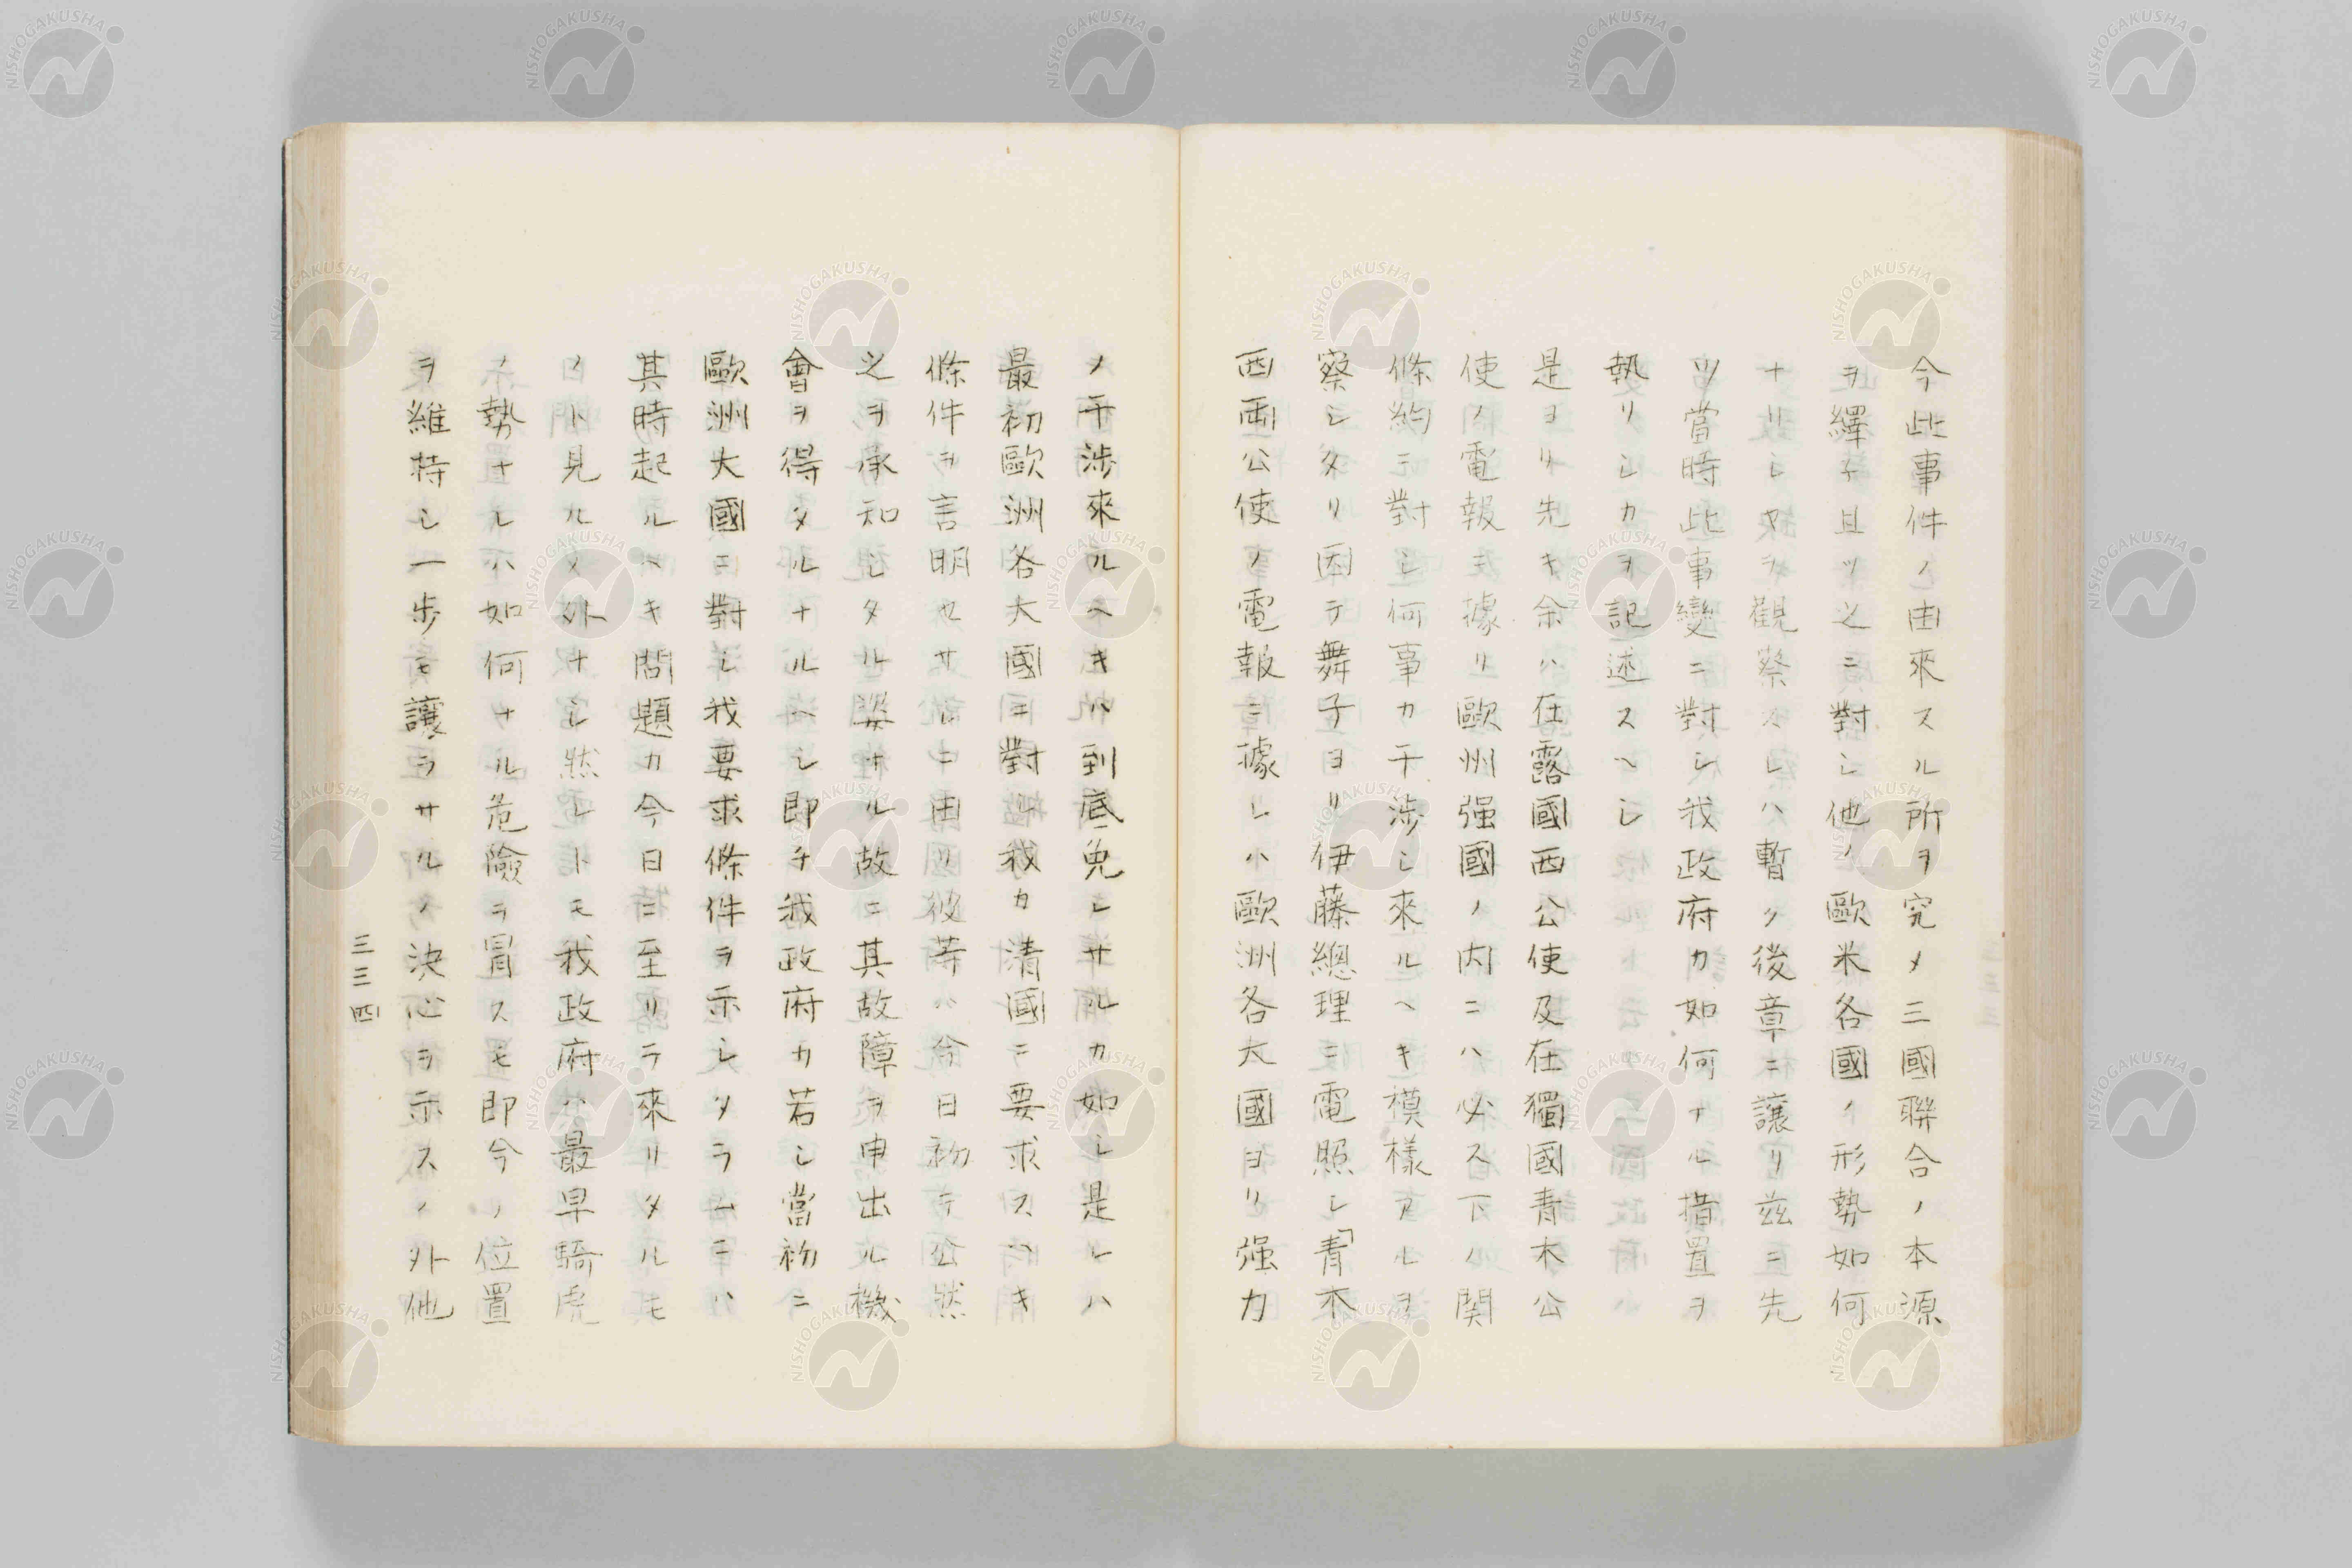 今此事件ノ由來スル所ヲ究メ三國聯合ノ本源
ヲ繹子且ツ之ニ對シ他ノ歐米各國ノ形勢如何
ナリシヤヲ觀察スレハ暫ク後章ニ譲リ茲ニ先
ツ當時此事變ニ對シ我政府カ如何ナル措置ヲ
執リシカヲ記述スヘシ
是ヨリ先キ余ハ在露國西公使及在獨國青木公
使ノ電報ニ據リ歐州强國ノ内ニハ必ス下ノ関
條約ニ對シ何事カ干渉シ來ルヘキ模様アルヲ
察シタリ因テ舞子ヨリ伊藤總理ニ電照シ「青木
西両公使ノ電報ニ據レハ歐洲各大國ヨリ强力
ノ干渉來ルヘキハ到底免レサルカ如シ是レハ
最初歐洲各大國ニ對シ我カ清國ニ要求スヘキ
條件ヲ言明セサルニ由リ彼等ハ今日初テ公然
之ヲ承知シタル姿ナル故ニ其故障ヲ申出ル機
會ヲ得タルナルヘシ即チ我政府カ若シ當初ニ
歐洲大國ニ對シ我要求條件ヲ示シタラムニハ
其時起ルヘキ問題カ今日ニ至リテ來リタルモ
ノト見ル丈外ナシ然レトモ我政府ハ最早騎虎
ノ勢ナレハ如何ナル危險ヲ冒スモ即今ノ位置
ヲ維持シ一歩モ譲ラサルノ決心ヲ示スノ外他
三三四
NISHOGAKUSHA